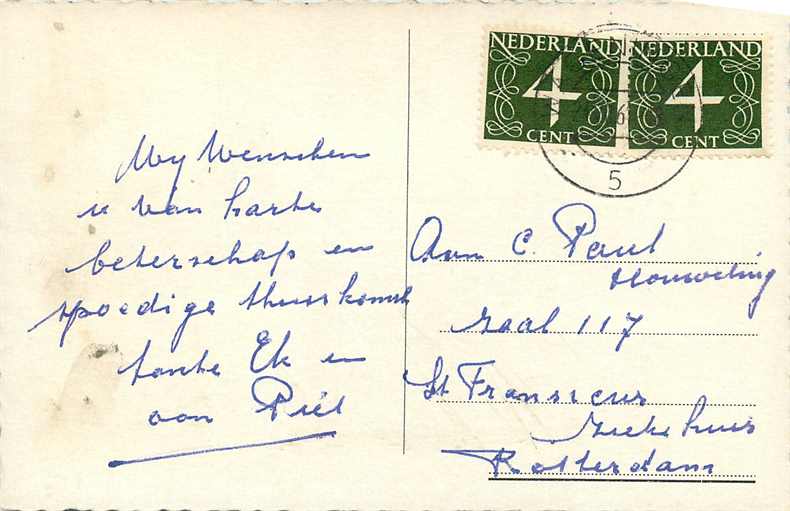 NEDERLAND NEDERLAND
4 4
CENT CENT
5
Wij Wenschen
u van harte
beterschap en
spoedige thuiskomst
tante Ek en
oom Piet
Aan C. Paul
Houweling
zaal 117
St Franciscus
Ziekehuis
Rotterdam